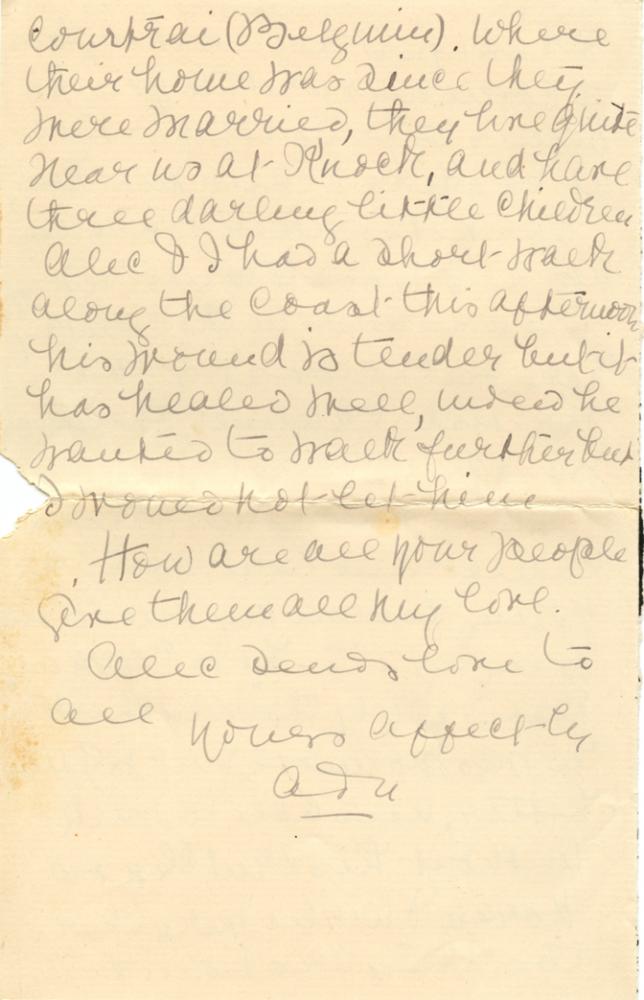 Courtrai (Belgium). Where
their home was since they
were married, they live quite
near us at Knock, and have
three darling little children
Alec & I had a short walk
along the coast this afternoon
his wound is tender but it
has healed well, indeed he
wanted to walk further but
I would not let him
How are all your people
Give them all my love.
Alec sends love to
all
yours affectly